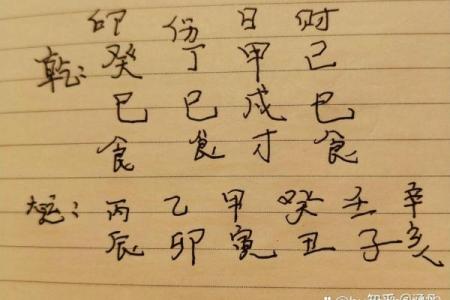 印 伤 日 财
乾：癸 丁 甲 己
巳 巳 戌 巳
食 食 才 食
大运：丙 乙 甲 癸 壬 辛
辰 卯 寅 丑 子 亥
知乎